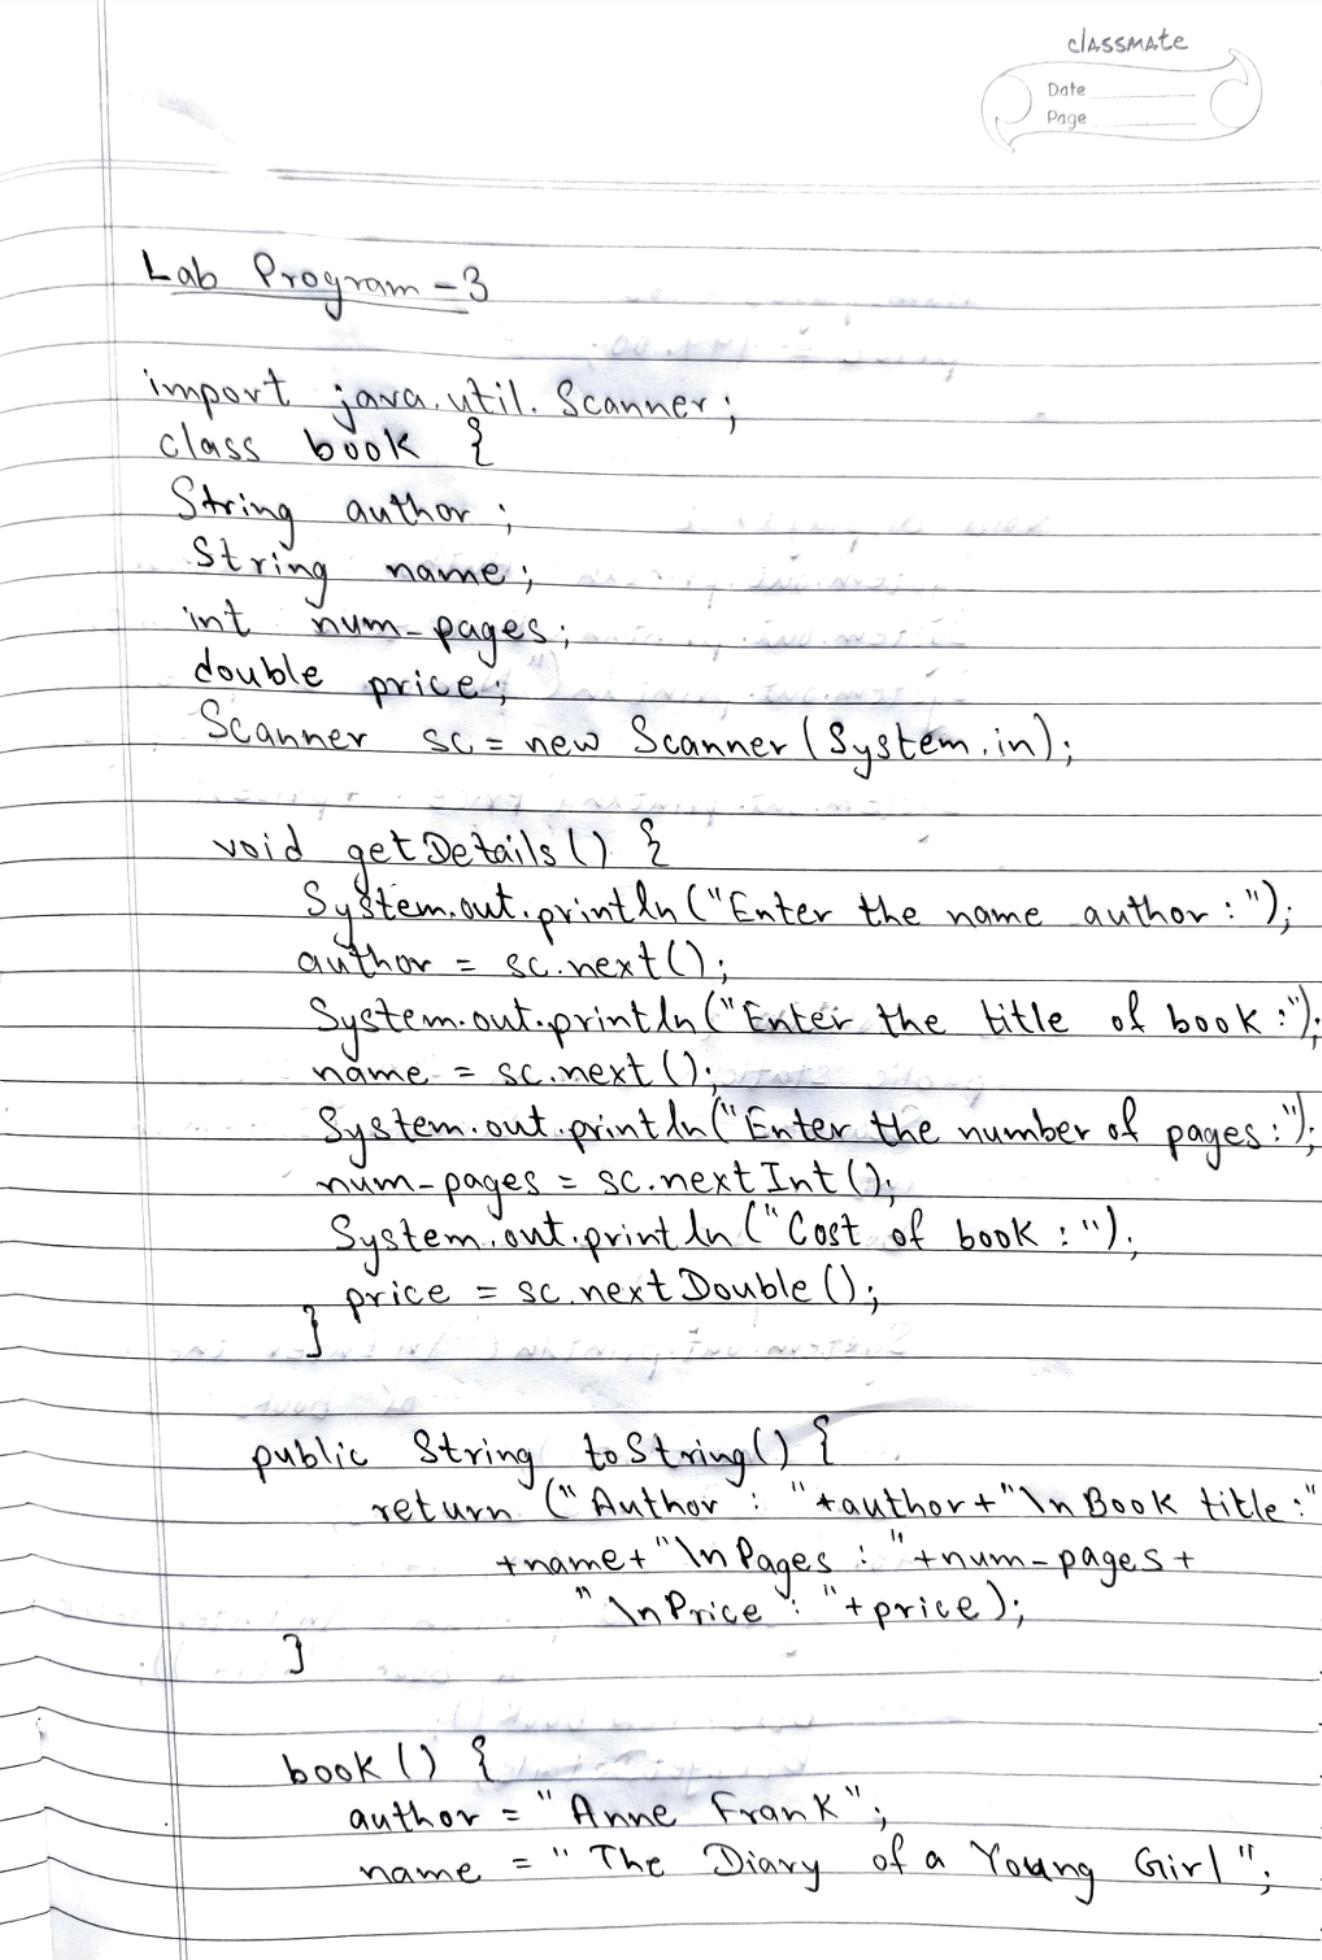 classmate
Date
Page
Lab Program - 3
import java.util.Scanner;
class book {
String author;
String name;
int num-pages;
double price;
Scanner sc = new Scanner (System.in);
void getDetails() {
System.out.println("Enter the name author :");
author = sc.next();
System.out.println("Enter the title of book :");
name = sc.next();
System.out.println("Enter the number of pages :");
num-pages = sc.nextInt();
System.out.println("Cost of book : ");
price = sc.nextDouble();
}
public String toString() {
return ("Author : "+author+"\nBook title :"
+name+"\nPages : "+num-pages+
"\nPrice : "+price);
}
book () {
author = "Anne Frank";
name = "The Diary of a Young Girl";